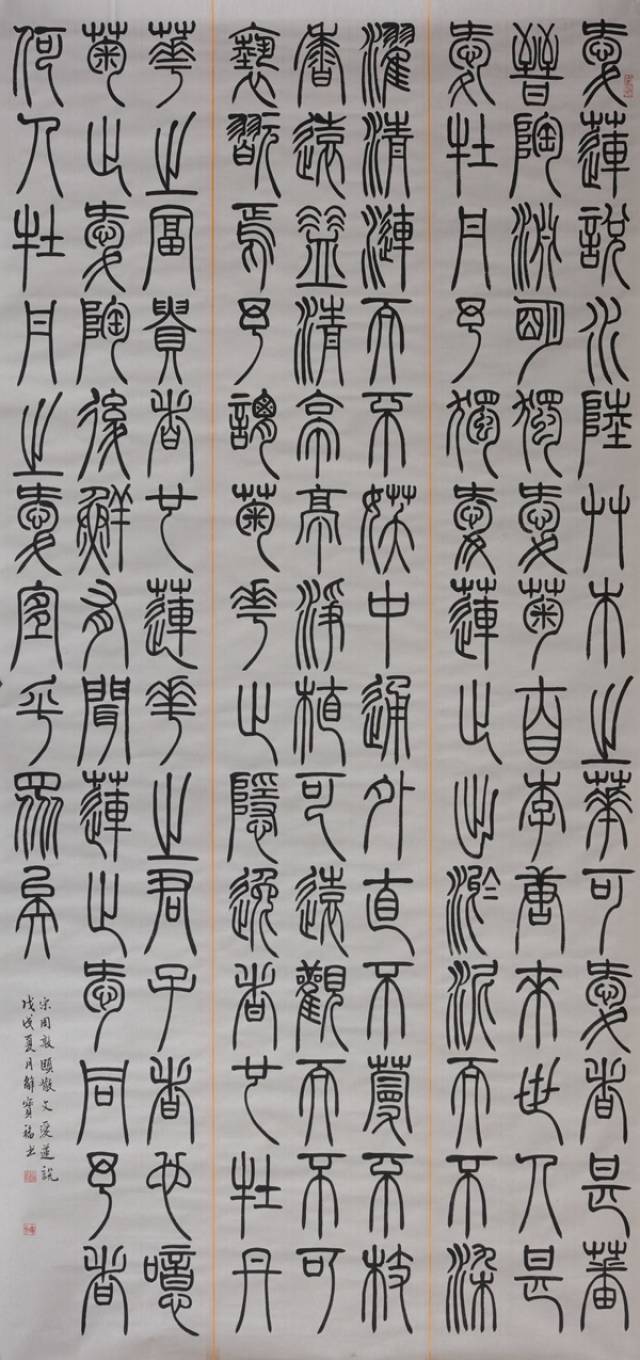 愛蓮說水陸艸木之華可愛者甚蕃
晉陶淵明獨愛菊自李唐來世人甚
愛牡丹予獨愛蓮之出淤泥而不染
濯清漣而不妖中通外直不蔓不枝
香遠益清亭亭淨植可遠觀而不可
褻翫焉予謂菊華之隱逸者也牡丹
華之富貴者也蓮華之君子者也噫
菊之愛陶後鮮有聞蓮之愛同予者
何人牡丹之愛宜乎眾矣
宋周敦頤散文愛蓮說
戊戌夏月寶福書